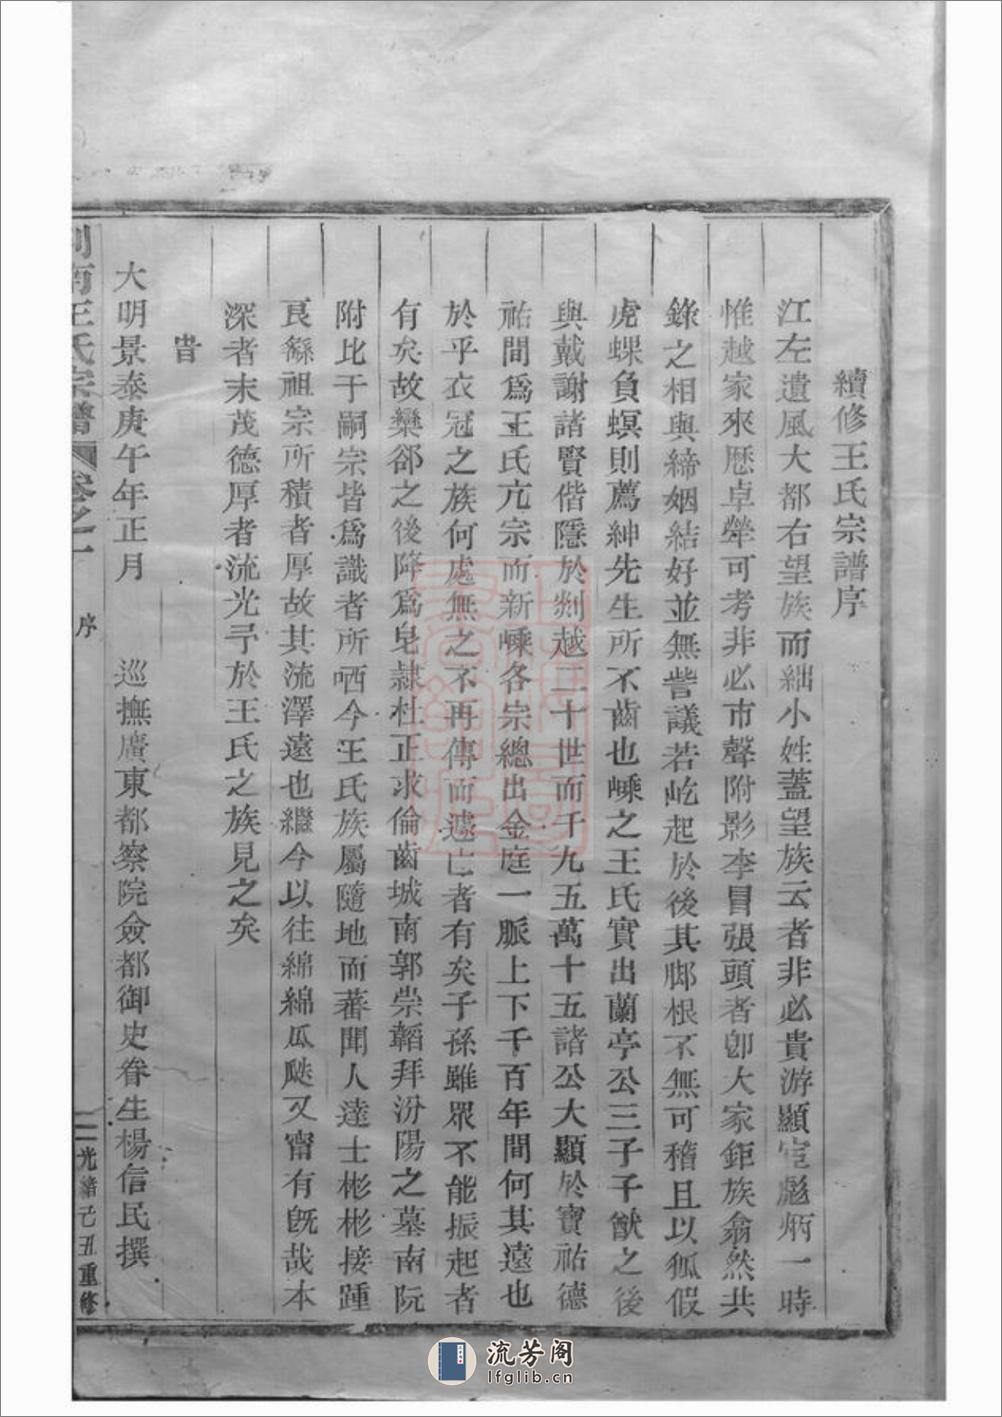 續修王氏宗譜序
江左遺風大都右望族而絀小姓蓋望族云者非必貴游顯宦彪炳一時
惟越家來歷卓犖可考非必市聲附影李冒張頭者卽大家鉅族翕然共
錄之相與締姻結好並無訾議若屹起於後其脚根不無可稽且以狐假
虎蜾負螟則薦紳先生所不齒也嵊之王氏實出蘭亭公三子子猷之後
與戴謝諸賢偕隱於剡越二十世而千九五萬十五諸公大顯於寶祐德
祐間爲王氏亢宗而新嵊各宗總出金庭一脈上下千百年間何其遠也
於乎衣冠之族何處無之不再傳而遽亡者有矣子孫雖眾不能振起者
有矣故欒郤之後降爲皂隷杜正求倫齒城南郭崇韜拜汾陽之墓南阮
附比于嗣宗皆爲識者所哂今王氏族屬隨地而蕃聞人達士彬彬接踵
良繇祖宗所積者厚故其流澤遠也繼今以往綿綿瓜瓞又甯有旣哉本
深者末茂德厚者流光予於王氏之族見之矣
旹
大明景泰庚午年正月 巡撫廣東都察院僉都御史眷生楊信民撰
南王氏宗譜 卷之一 序 二 光緒己丑重修
流芳阁
lfglib.cn